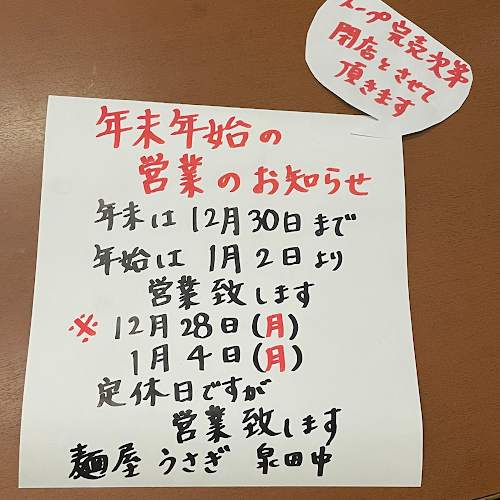 スープ完売次第
閉店とさせて
頂きます
年末年始の
営業のお知らせ
年末は12月30日まで
年始は1月2日より
営業致します
※12月28日(月)
1月4日(月)
定休日ですが
営業致します
麺屋うさぎ 泉田中